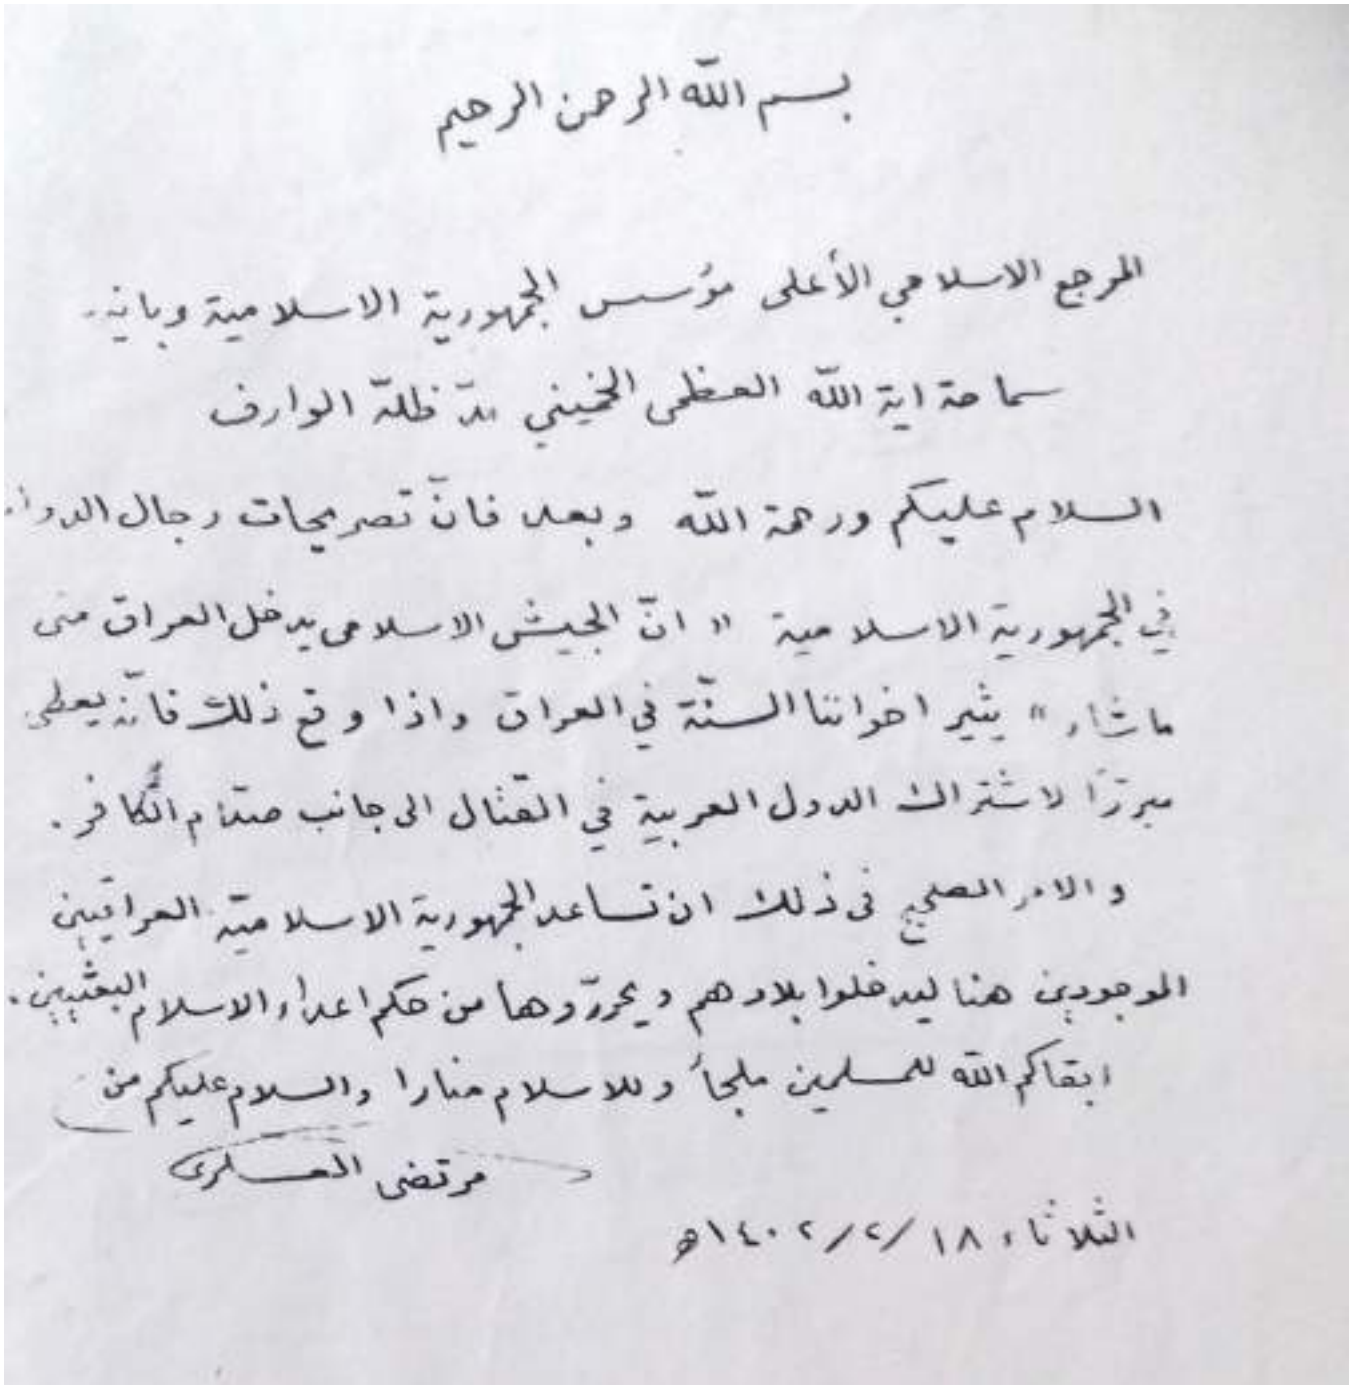 بسم الله الرحمن الرحيم
المرجع الاسلامي الأعلى مؤسس الجمهورية الاسلامية
سماحة اية الله العظمى الخميني مدّ ظلّه الوارف
السلام عليكم ورحمة الله وبعد فانّ تصريحات رجال
في الجمهورية الاسلامية " انّ الجيش الاسلامى يدخل العراق متى
ماشاء " يثير اخواننا السنّة في العراق واذا وقع ذلك فانّه يعطى
مبررًا لاشتراك الدول العربية في القتال الى جانب صدّام الكافر .
والامر الصحيح فى ذلك ان تساعد الجمهورية الاسلاميّة العراقيين
الموجودين هنا ليدخلوا بلادهم ويحررّوها من حكم اعداء الاسلام البعثيين .
ابقاكم الله للمسلمين ملجأ وللاسلام منارا والسلام عليكم من
مرتضى العسكرى
الثلاثاء ١٨/٢/١٤٠٢هـ